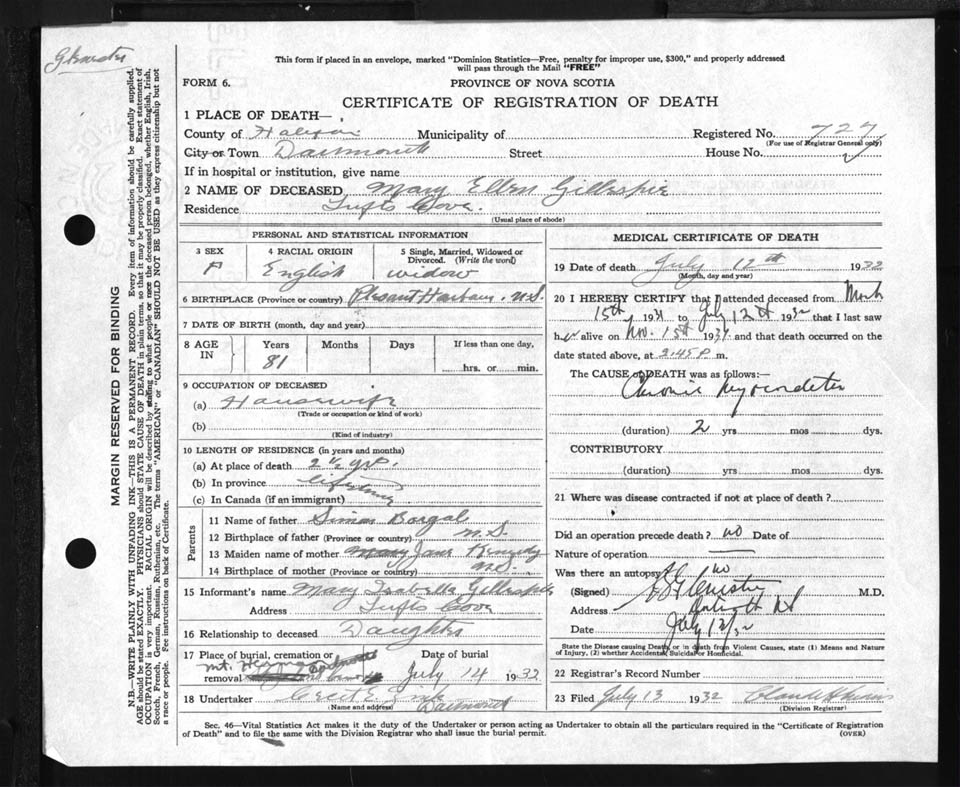 This form if placed in an envelope, marked "Dominion Statistics—Free, penalty for improper use, $300," and properly addressed
will pass through the Mail "FREE"
FORM 6. PROVINCE OF NOVA SCOTIA
CERTIFICATE OF REGISTRATION OF DEATH
1 PLACE OF DEATH—
County of Halifax Municipality of Registered No. 727
(For use of Registrar General only)
City or Town Dartmouth Street House No.
If in hospital or institution, give name
2 NAME OF DECEASED Mary Ellen Gillespie
Residence Tufts Cove.
(Usual place of abode)
PERSONAL AND STATISTICAL INFORMATION
3 SEX 4 RACIAL ORIGIN 5 Single, Married, Widowed or
Divorced. (Write the word)
F English widow
6 BIRTHPLACE (Province or country) Plesant Harbour. N.S.
7 DATE OF BIRTH (month, day and year)
8 AGE IN Years Months Days If less than one day,
81 hrs. or min.
9 OCCUPATION OF DECEASED
(a) Housewife
(Trade or occupation or kind of work)
(b)
(Kind of industry)
10 LENGTH OF RESIDENCE (in years and months)
(a) At place of death 2 ½ yrs.
(b) In province lifetime
(c) In Canada (if an immigrant)
Parents
11 Name of father Simon
12 Birthplace of father (Province or country) N.S.
13 Maiden name of mother Mary Jane Kennedy
14 Birthplace of mother (Province or country) N.S.
15 Informant's name Mary Gillespie
Address Tufts Cove
16 Relationship to deceased Daughter
17 Place of burial, cremation or Date of burial
removal Mt. July 14 1932
18 Undertaker Cecil E.
(Name and address) Dartmouth
MEDICAL CERTIFICATE OF DEATH
19 Date of death July 12th 1932
(Month, day and year)
20 I HEREBY CERTIFY that I attended deceased from March
15th 1931 to July 12th 1932 that I last saw
her alive on Nov. 15th 1931 and that death occurred on the
date stated above, at 2:45 P m.
The CAUSE of DEATH was as follows:—
Chronic Myocarditis
(duration) 2 yrs mos dys.
CONTRIBUTORY
(duration) yrs mos dys.
21 Where was disease contracted if not at place of death?
Did an operation precede death? no Date of
Nature of operation
Was there an autopsy? no
(Signed) M.D.
Address
Date July 12/32
State the Disease causing Death, or in death from Violent Causes, state (1) Means and Nature
of Injury, (2) whether Accidental, Suicidal or Homicidal.
22 Registrar's Record Number
23 Filed July 13 1932
(Division Registrar)
Sec. 46—Vital Statistics Act makes it the duty of the Undertaker or person acting as Undertaker to obtain all the particulars required in the "Certificate of Registration
of Death" and to file the same with the Division Registrar who shall issue the burial permit. (OVER)
MARGIN RESERVED FOR BINDING
N.B.—WRITE PLAINLY WITH UNFADING INK—THIS IS A PERMANENT RECORD. Every item of information should be carefully supplied.
AGE should be stated EXACTLY. PHYSICIANS should STATE CAUSE OF DEATH in plain terms, so that it may be properly classified. Exact statement of
OCCUPATION is very important. RACIAL ORIGIN will be described by stating to what people or race the deceased person belonged, whether English, Irish,
Scotch, French, German, Russian, Ruthenian, etc. The terms "AMERICAN" or "CANADIAN" SHOULD NOT BE USED as they express citizenship but not
a race or people. Fee instructions on back of Certificate.